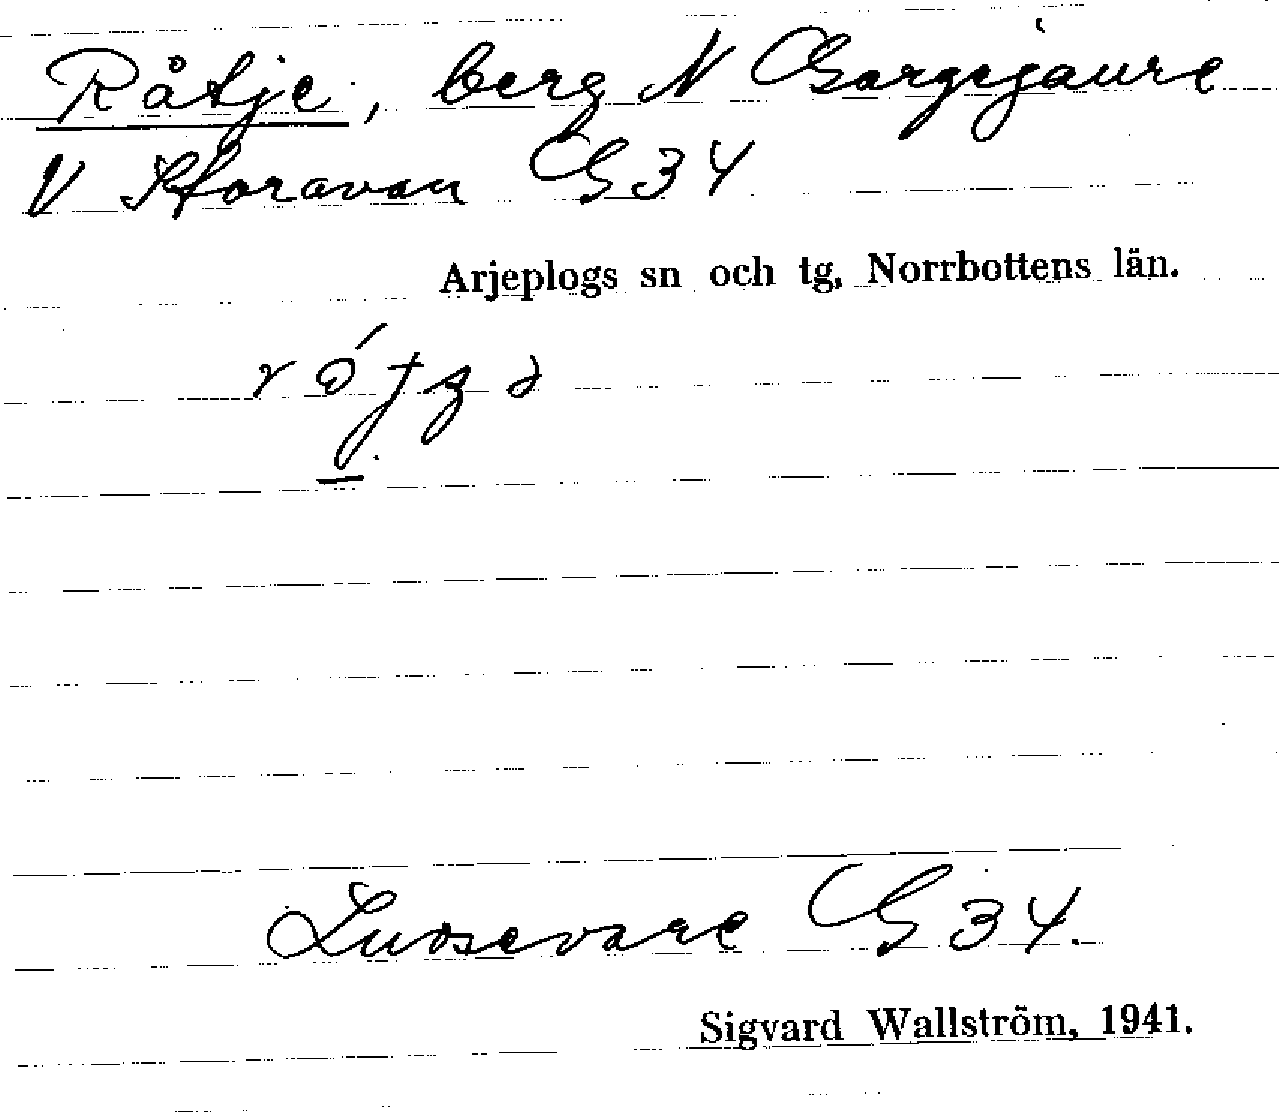 Råtje, berg N Gargejaure
V Storavan G 34
Arjeplogs sn och tg, Norrbottens län.
Luosevare G 34.
Sigvard Wallström, 1941.